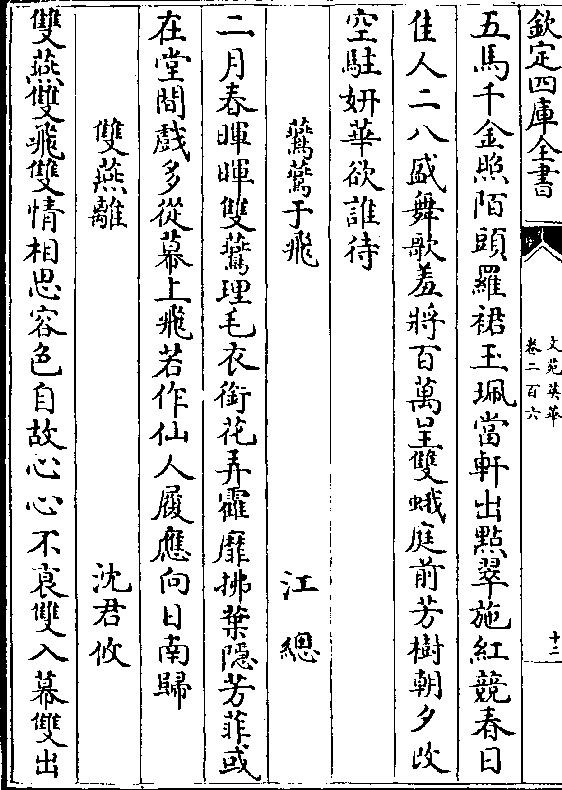 欽定四庫全書
文苑英華
卷二百六
十二
五馬千金照陌頭羅裙玉珮當軒出點翠施紅競春日
佳人二八盛舞歌羞將百萬呈雙蛾庭前芳樹朝夕改
空駐妍華欲誰待
鷰鷰于飛
江總
二月春暉暉雙鷰理毛衣銜花弄霍靡拂葉隱芳菲或
在堂間戲多從幕上飛若作仙人履應向日南歸
雙燕離
沈君攸
雙燕雙飛雙情相思容色自故心心不衰雙入幕雙出